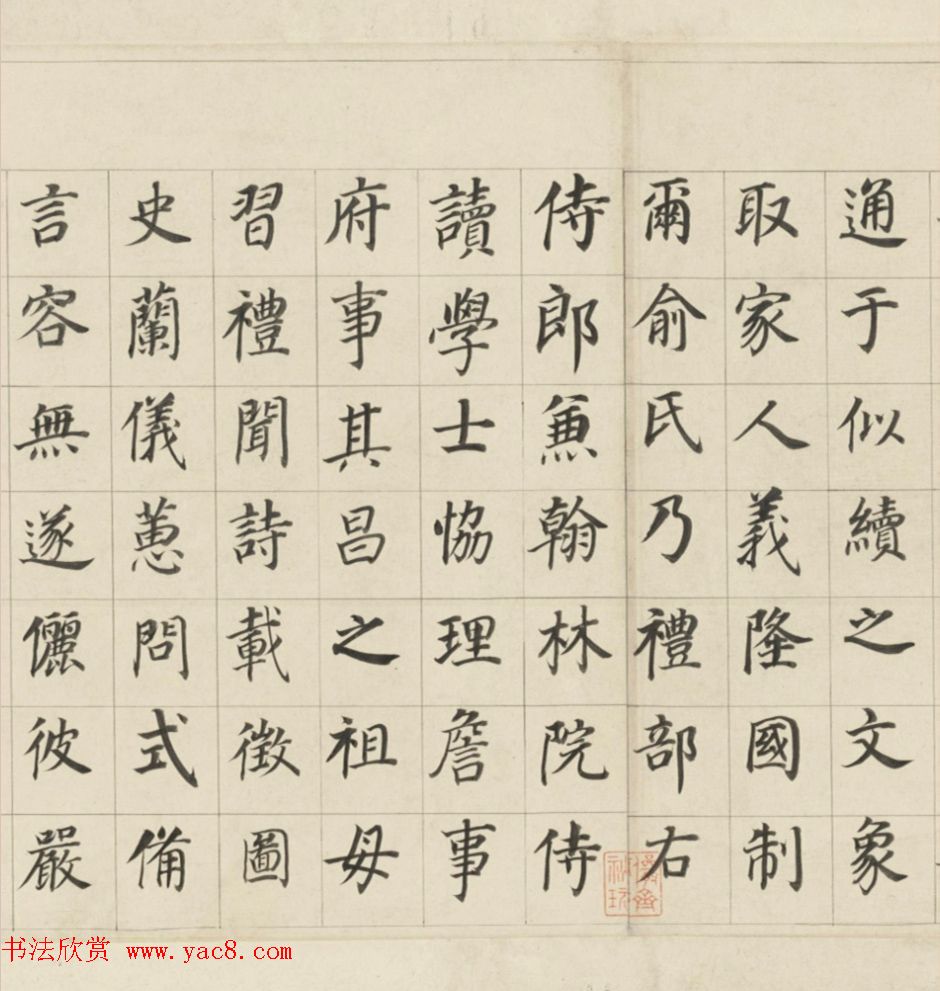 通于似續之文象
取家人義隆國制
爾俞氏乃禮部右
侍郎兼翰林院侍
讀學士協理詹事
府事其昌之祖母
習禮聞詩載徵圖
史蘭儀蕙問式備
言容無遂儷彼嚴
书法欣赏 www.yac8.com